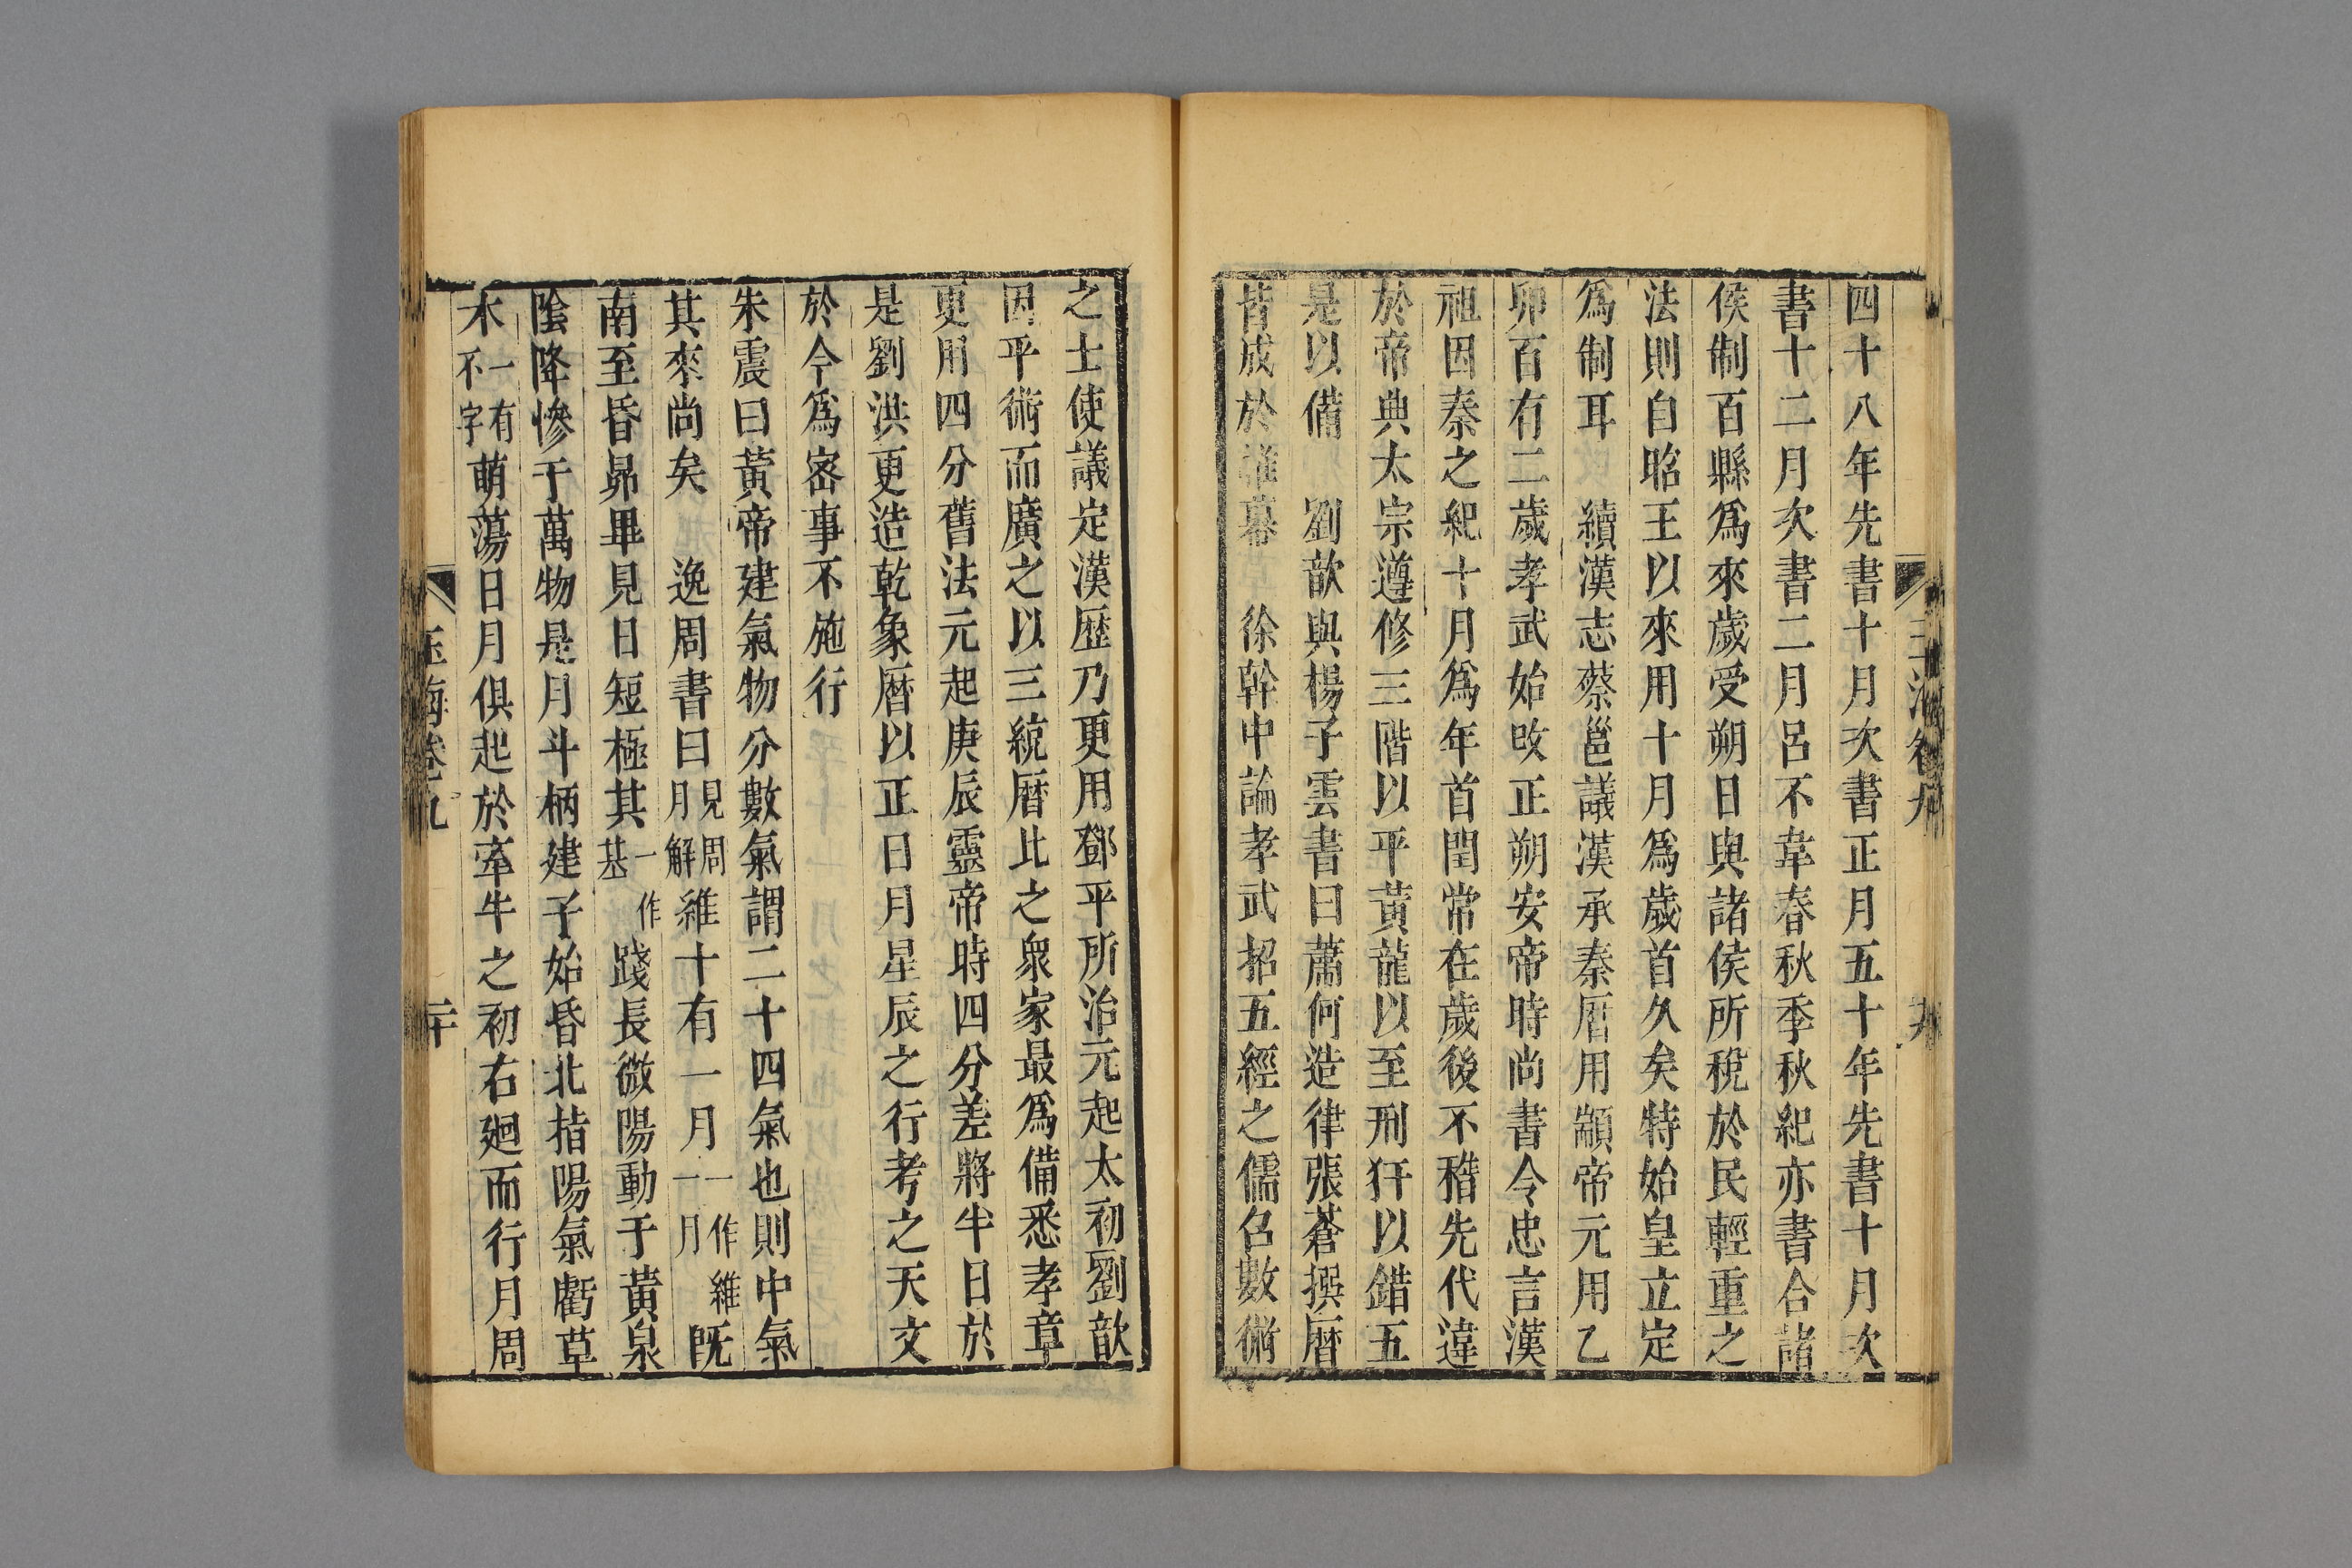 四十八年先書十月次書正月五十年先書十月次
書十二月次書二月呂不韋春秋季秋紀亦書合諸
侯制百縣爲來歲受朔日與諸侯所稅於民輕重之
法則自昭王以來用十月爲歲首久矣特始皇立定
爲制耳 續漢志蔡邕議漢承秦厯用顓帝元用乙
卯百有二歲孝武始改正朔安帝時尚書令忠言漢
祖因秦之紀十月爲年首閏常在歲後不稽先代違
於帝典太宗遵修三階以平黃龍以至刑犴以錯五
是以備 劉歆與楊子雲書曰蕭何造律張蒼撰厤
皆成於帷幕 徐幹中論孝武招五經之儒召數術
之士使議定漢歷乃更用鄧平所治元起太初劉歆
因平術而廣之以三統厤比之衆家最爲備悉孝章
更用四分舊法元起庚辰靈帝時四分差將半日於
是劉洪更造乾象厤以正日月星辰之行考之天文
於今爲宻事不施行
朱震曰黃帝建氣物分數氣謂二十四氣也則中氣
其來尚矣 逸周書曰見周月解維十有一月一作維一月旣
南至昏昴畢見日短極其一作基踐長微陽動于黃泉
陰降慘于萬物是月斗柄建子始昏北指陽氣虧草
木一有不字萌蕩日月俱起於牽牛之初右廻而行月周
玉海卷九
二十